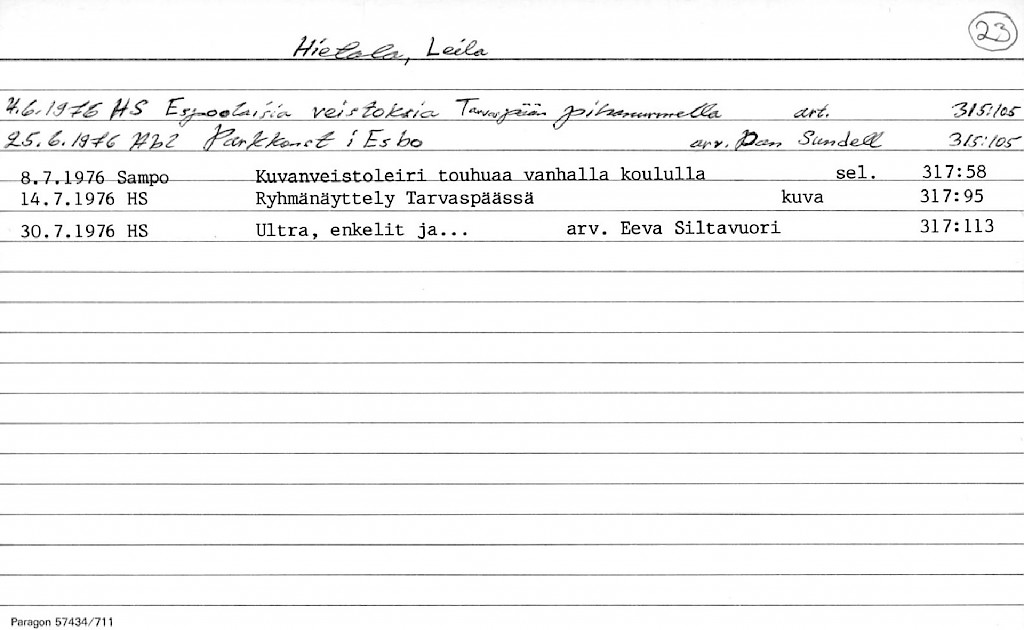 23
Hietala, Leila
4.6.1976 HS Espoolaisia veistoksia Tarvaspään pihanurmella art. 315:105
25.6.1976 Hbl Parkkonst i Esbo arv. Dan Sundell 315:105
8.7.1976 Sampo Kuvanveistoleiri touhuaa vanhalla koululla sel. 317:58
14.7.1976 HS Ryhmänäyttely Tarvaspäässä kuva 317:95
30.7.1976 HS Ultra, enkelit ja... arv. Eeva Siltavuori 317:113
Paragon 57434/711